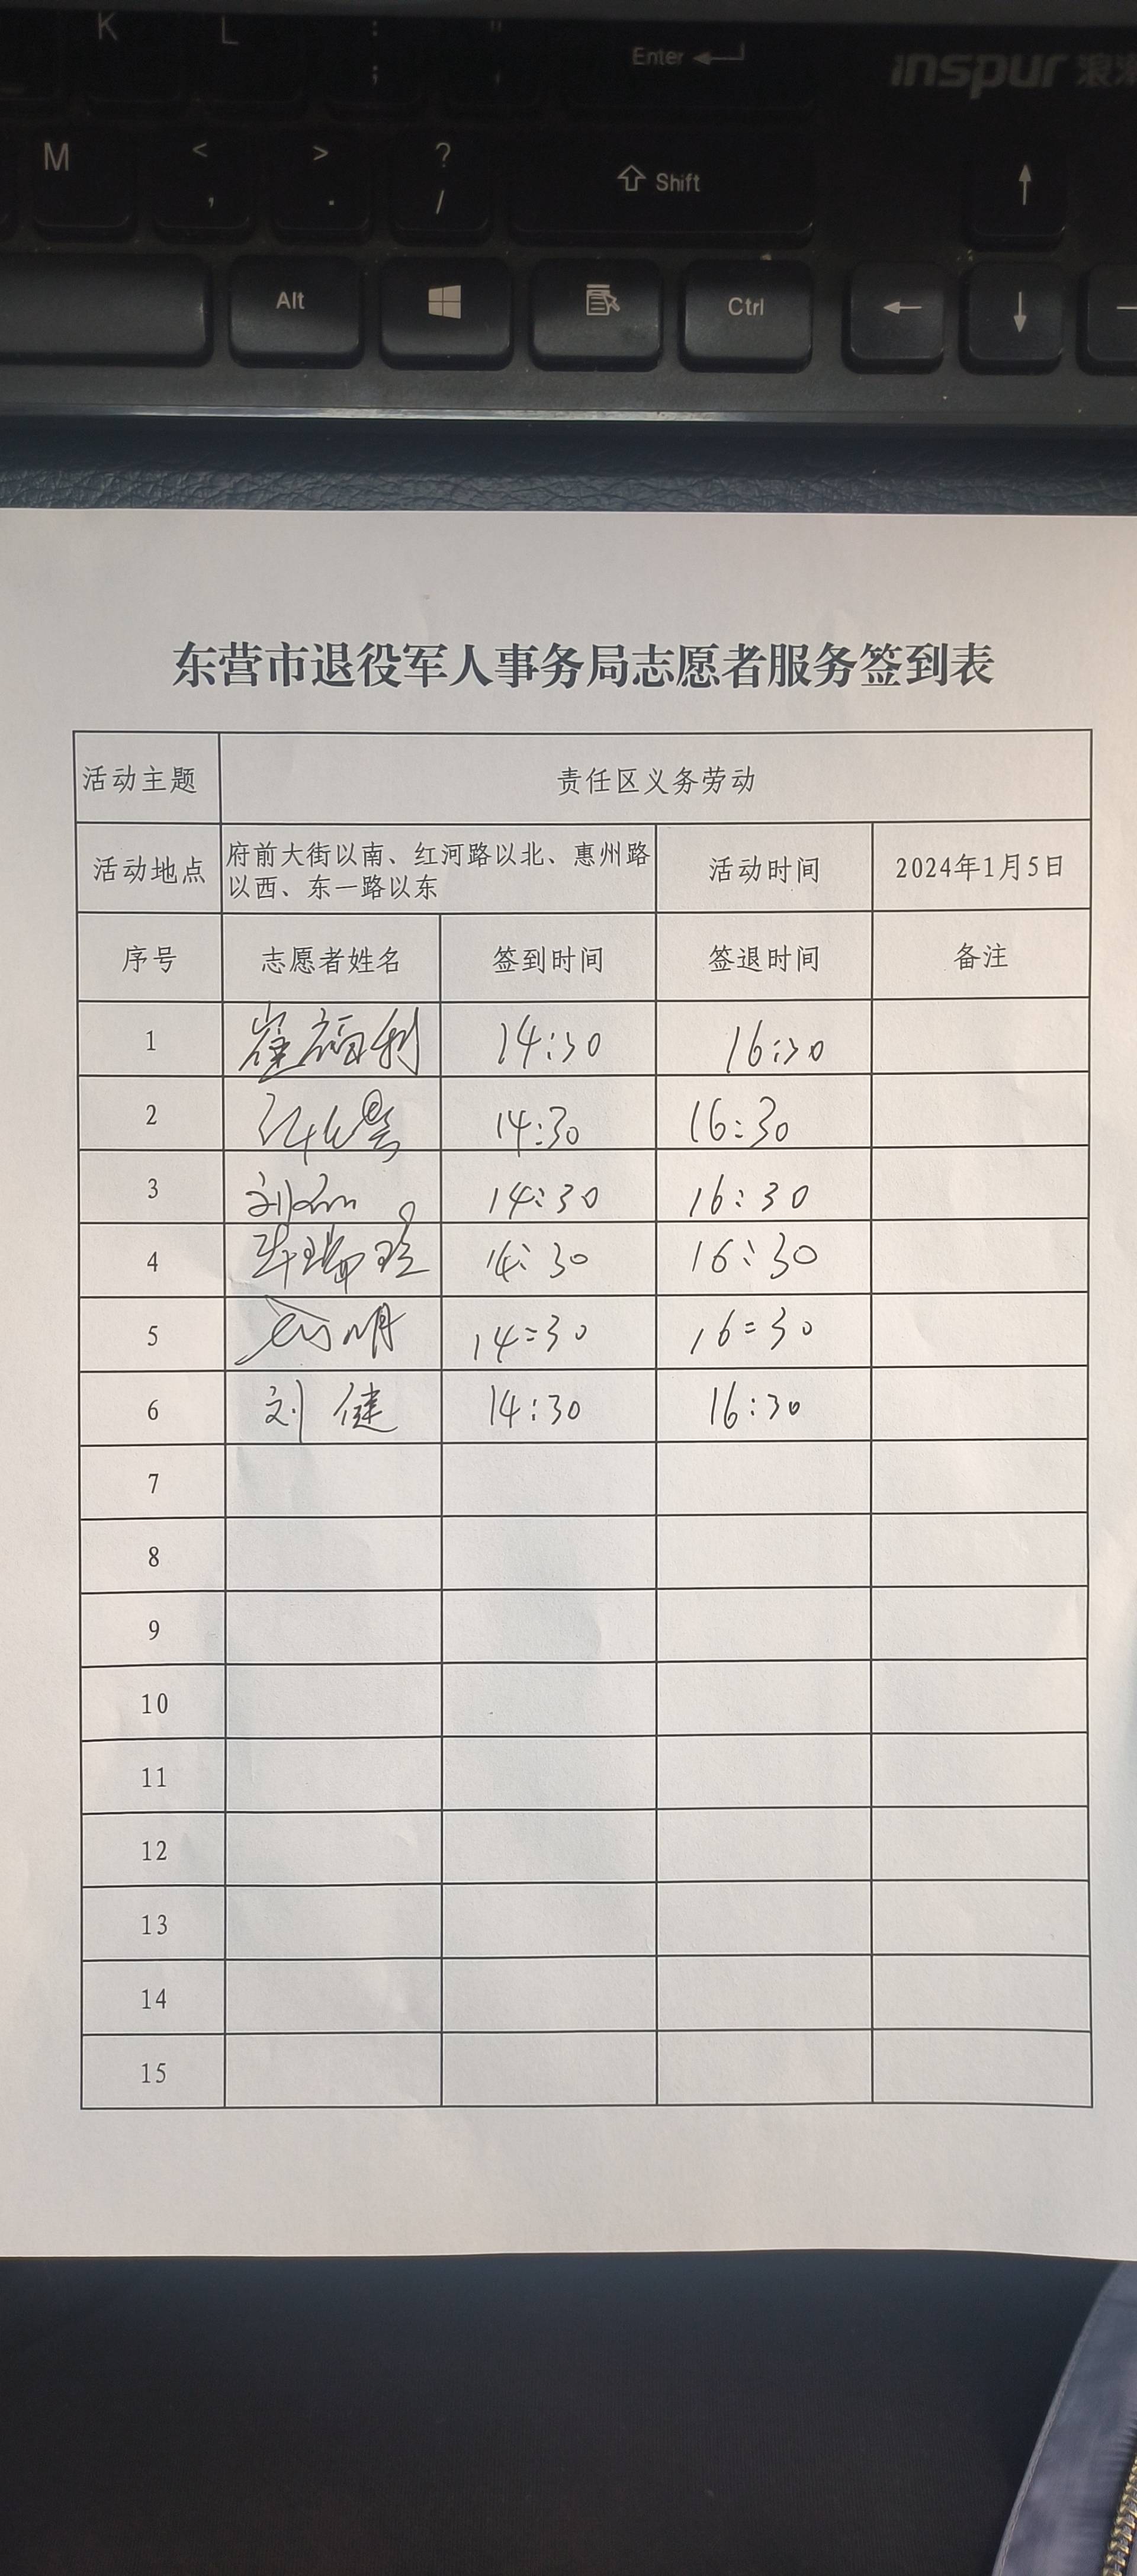 K L : ; " '
Enter
inspur 浪潮
M < , > . ? /
Shift
Alt
Ctrl
东营市退役军人事务局志愿者服务签到表
活动主题 责任区义务劳动
活动地点 府前大街以南、红河路以北、惠州路
以西、东一路以东 活动时间 2024年1月5日
序号 志愿者姓名 签到时间 签退时间 备注
1 崔福利 14:30 16:30
2 14:30 16:30
3 14:30 16:30
4 14:30 16:30
5 14:30 16:30
6 刘健 14:30 16:30
7
8
9
10
11
12
13
14
15